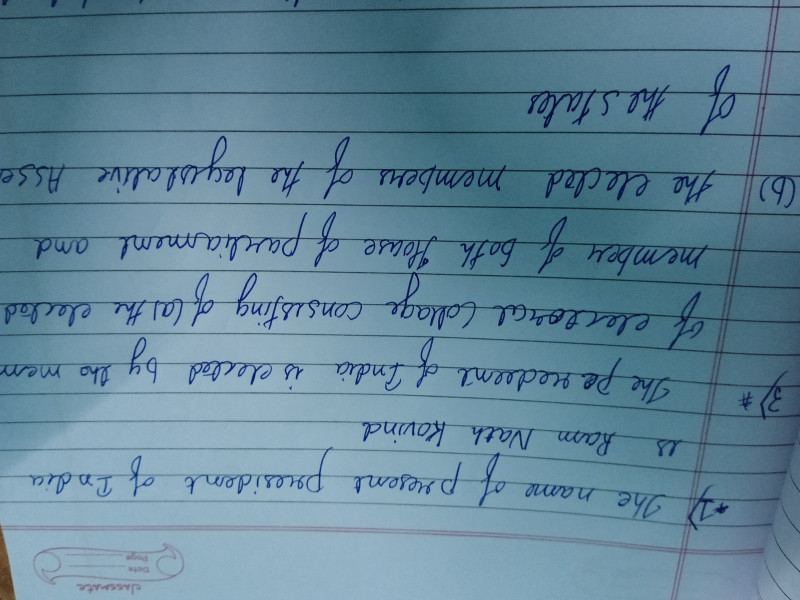 classmate
Date
Page
*1) The name of present president of India
is Ram Nath Kovind
3) * The presedent of India is elected by the mem
of electoral Collage consisting of (a) the elected
member of both House of parliament and
(b) the elected members of the legislative Asse
of the states